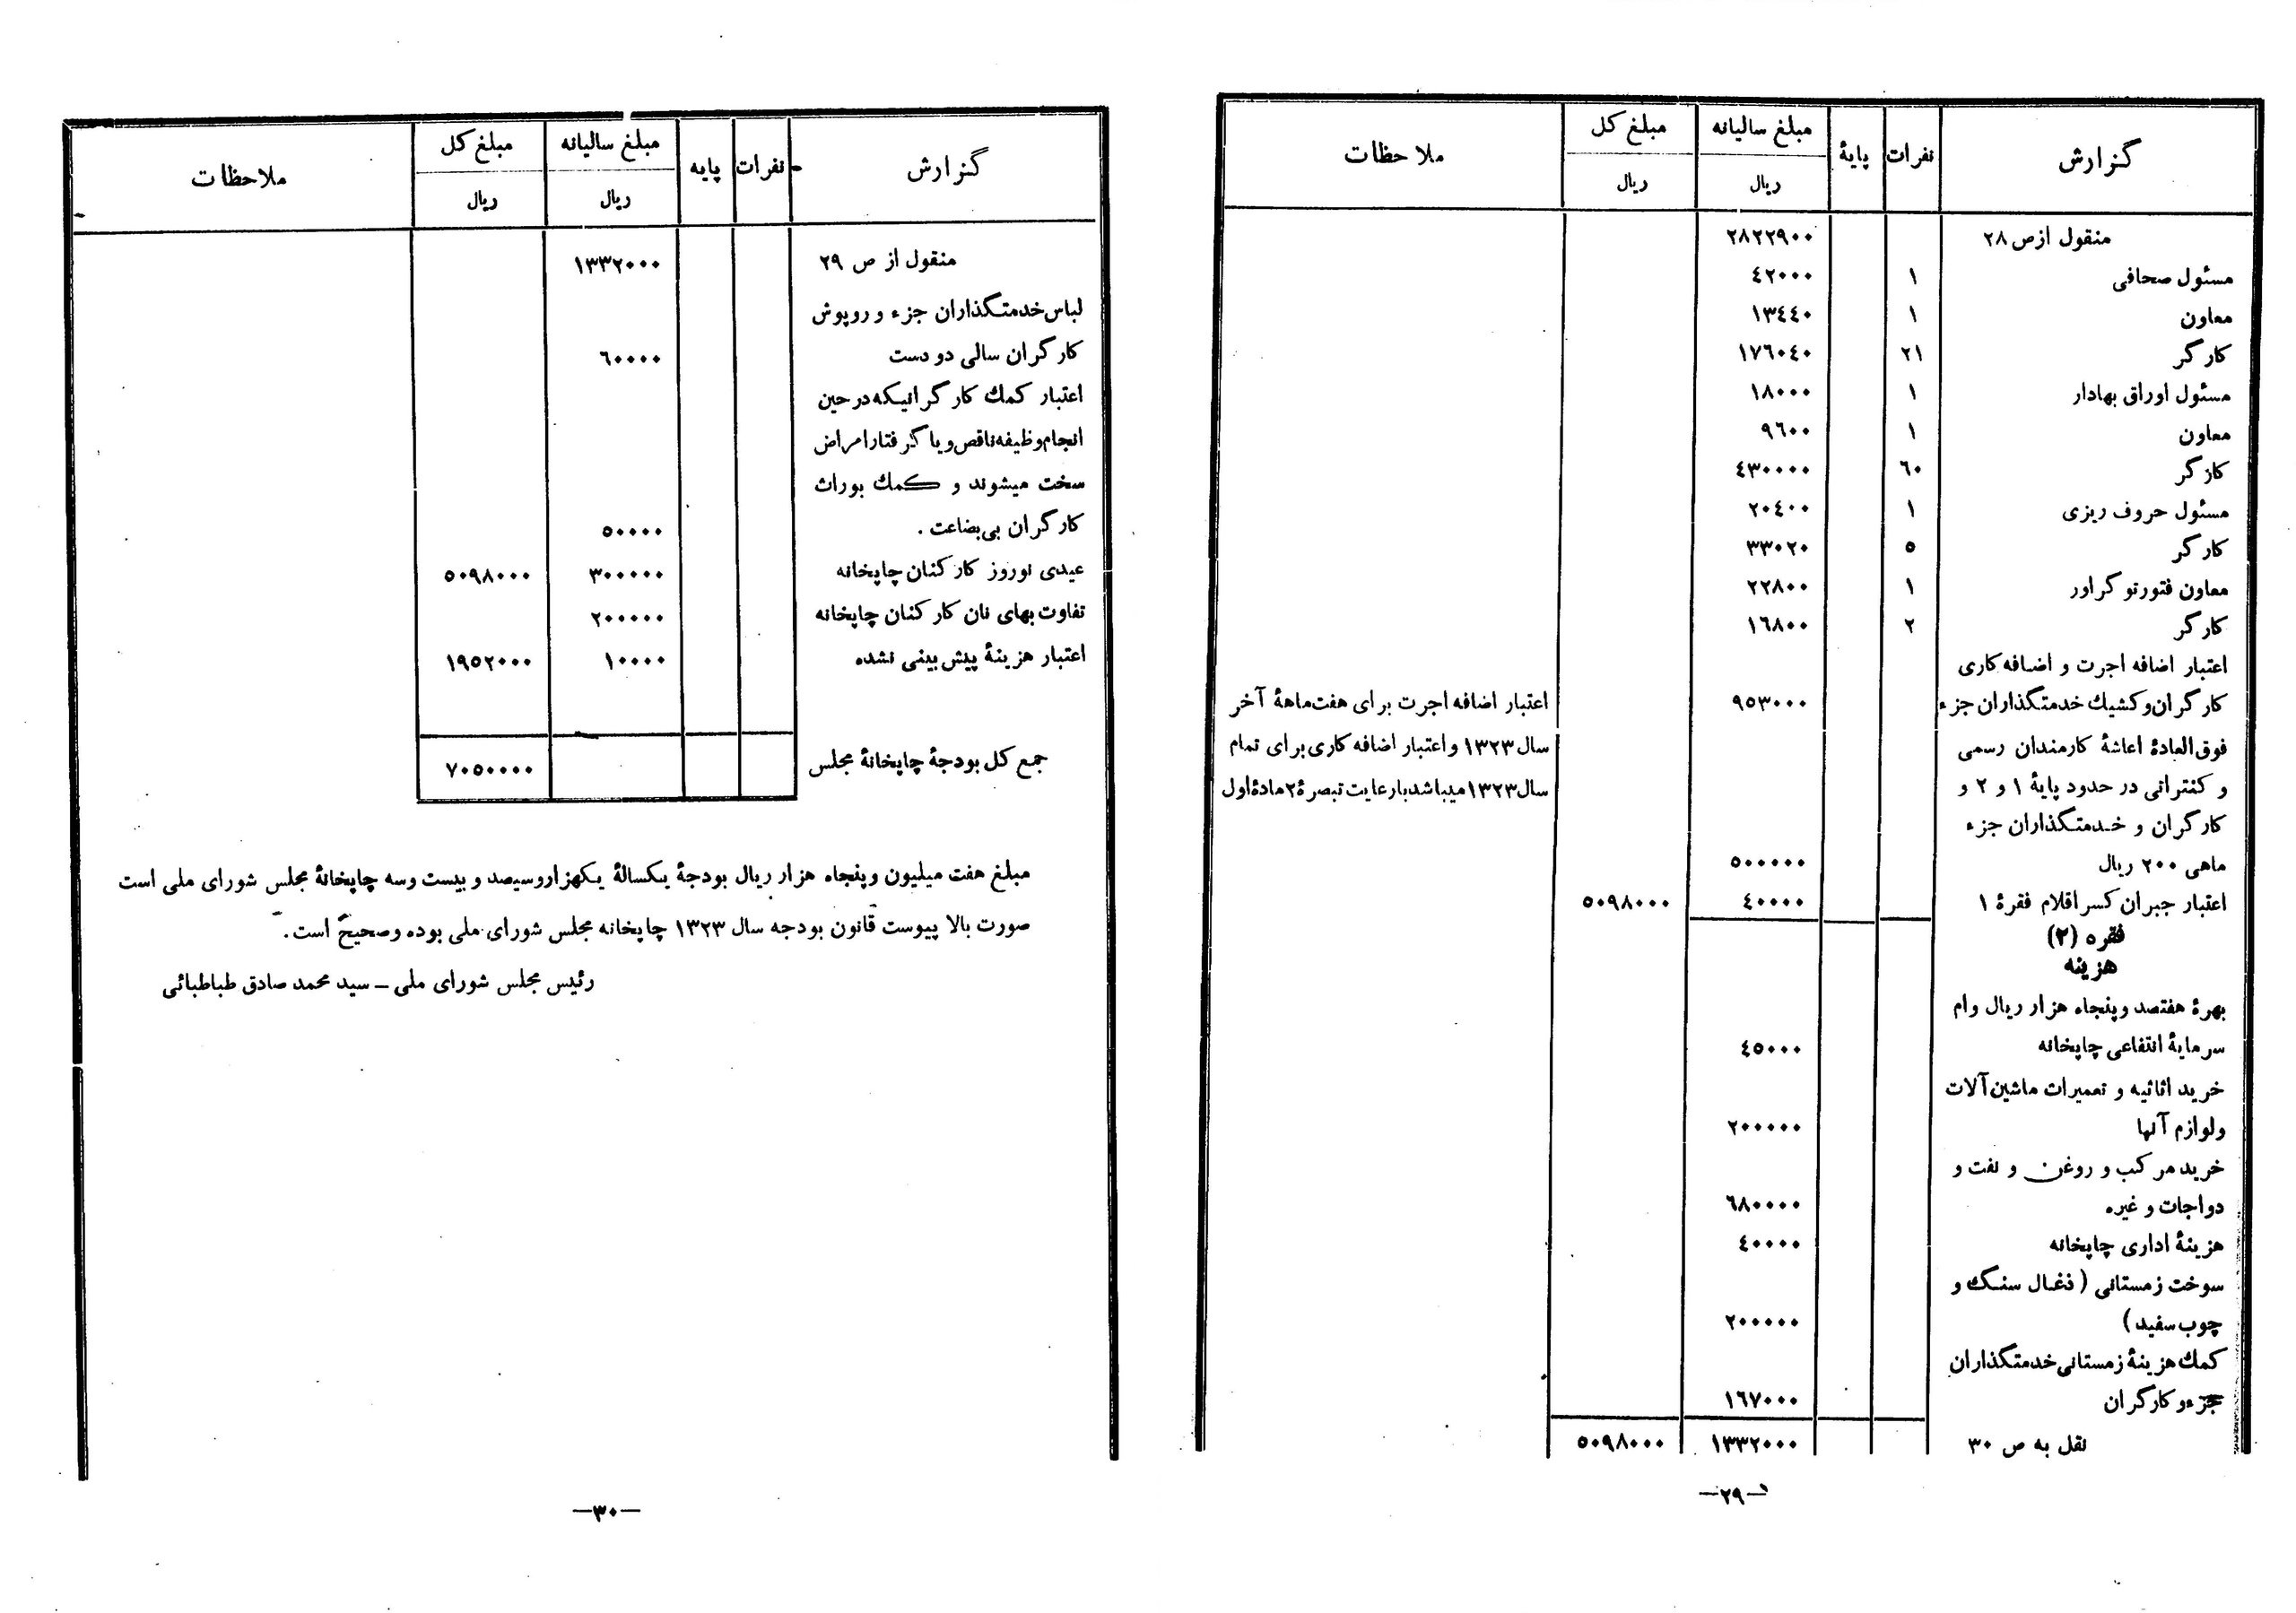 گزارش	نفرات	پایهٔ	مبلغ سالیانه ریال	مبلغ کل ریال	ملاحظات
منقول از ص ۲۸	۲۸۲۲۹۰۰
مسئول صحافی	۱	۴۲۰۰۰
معاون	۱	۱۳۴۴۰
کارگر	۲۱	۱۷۶۰۴۰
مسئول اوراق بهادار	۱	۱۸۰۰۰
معاون	۱	۹۶۰۰
کارگر	۶۰	۴۳۰۰۰۰
مسئول حروف ریزی	۱	۲۰۴۰۰
کارگر	۵	۳۳۰۲۰
معاون فتورتوگراور	۱	۲۲۸۰۰
کارگر	۲	۱۶۸۰۰
اعتبار اضافه اجرت و اضافه کاری
کارگران و کشیك خدمتگذاران جزء	۹۵۳۰۰۰	اعتبار اضافه اجرت برای هفت ماههٔ آخر
فوق العادهٔ اعاشهٔ کارمندان رسمی	سال ۱۳۲۳ و اعتبار اضافه کاری برای تمام
و کنتراتی در حدود پایهٔ ۱ و ۲ و	سال ۱۳۲۳ میباشد بارعایت تبصرهٔ ۲ مادهٔ اول
کارگران و خدمتگذاران جزء
ماهی ۲۰۰ ریال	۵۰۰۰۰۰
اعتبار جبران کسر اقلام فقرهٔ ۱	۴۰۰۰۰	۵۰۹۸۰۰۰
فقره (۲)
هزینه
بهرهٔ هفتصد و پنجاه هزار ریال وام
سرمایهٔ انتفاعی چاپخانه	۴۵۰۰۰
خرید اثاثیه و تعمیرات ماشین آلات
ولوازم آنها	۲۰۰۰۰۰
خرید مرکب و روغن و نفت و
دواجات و غیره	۶۸۰۰۰۰
هزینهٔ اداری چاپخانه	۴۰۰۰۰
سوخت زمستانی (ذغال سنگ و
چوب سفید)	۲۰۰۰۰۰
کمك هزینهٔ زمستانی خدمتگذاران
جزء و کارگران	۱۶۷۰۰۰
نقل به ص ۳۰	۱۳۳۲۰۰۰	۵۰۹۸۰۰۰
—۲۹—
گزارش	نفرات	پایه	مبلغ سالیانه ریال	مبلغ کل ریال	ملاحظات
منقول از ص ۲۹	۱۳۳۲۰۰۰
لباس خدمتگذاران جزء و روپوش
کارگران سالی دو دست	۶۰۰۰۰
اعتبار کمك کارگرانیکه در حین
انجام وظیفه ناقص و یا گرفتار امراض
سخت میشوند و کمك بوراث
کارگران بی بضاعت .	۵۰۰۰۰
عیدی نوروز کارکنان چاپخانه	۳۰۰۰۰۰	۵۰۹۸۰۰۰
تفاوت بهای نان کارکنان چاپخانه	۲۰۰۰۰۰
اعتبار هزینهٔ پیش بینی نشده	۱۰۰۰۰	۱۹۵۲۰۰۰
جمع کل بودجهٔ چاپخانهٔ مجلس	۷۰۵۰۰۰۰
مبلغ هفت میلیون و پنجاه هزار ریال بودجهٔ یکسالهٔ یکهزار و سیصد و بیست و سه چاپخانهٔ مجلس شورای ملی است
صورت بالا پیوست قانون بودجه سال ۱۳۲۳ چاپخانه مجلس شورای ملی بوده و صحیح است.
رئیس مجلس شورای ملی ـ سید محمد صادق طباطبائی
—۳۰—